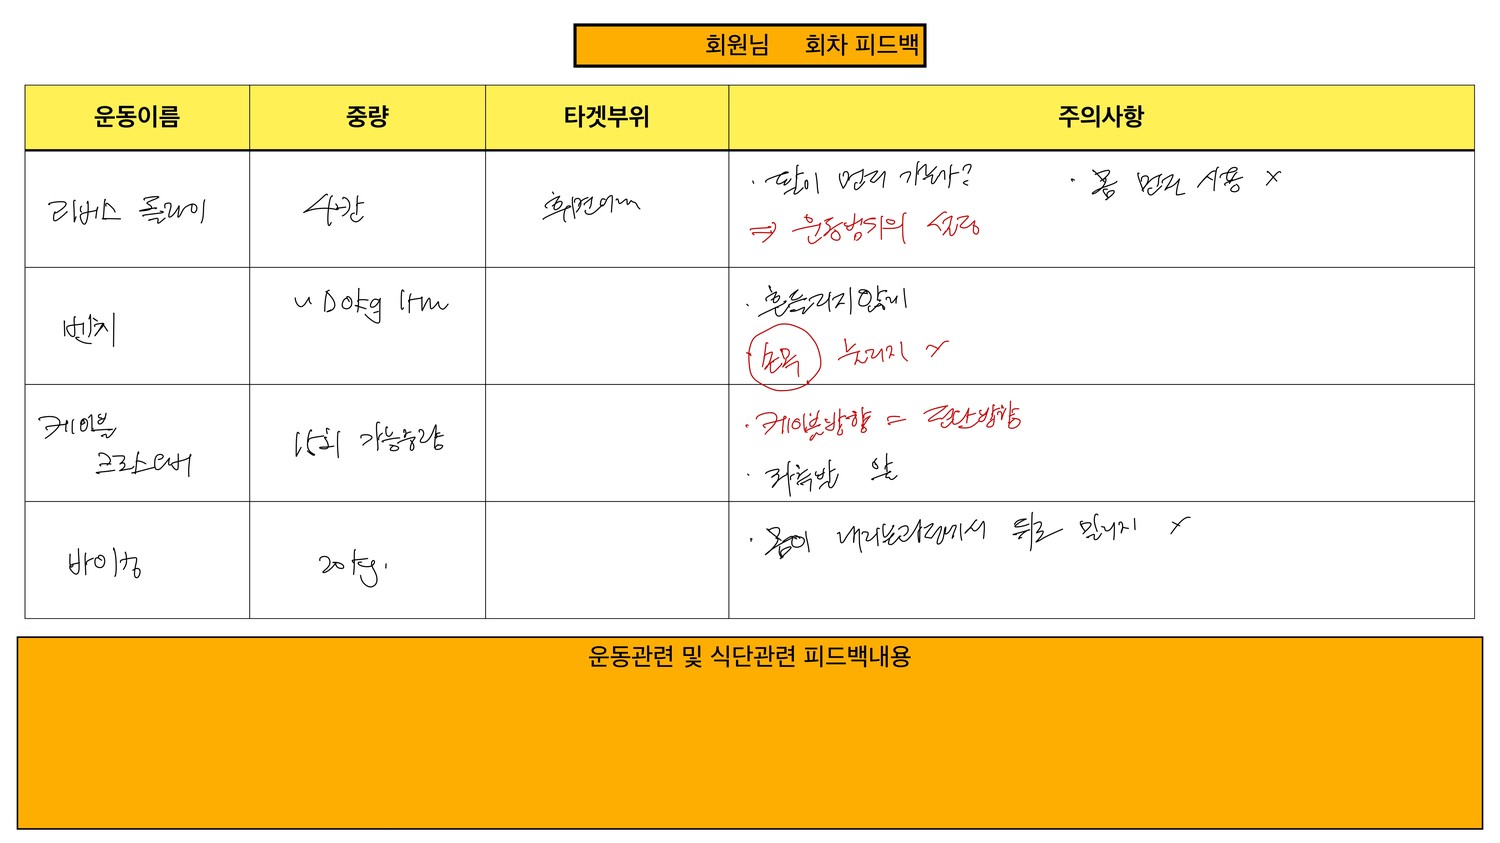 회원님 회차 피드백
운동이름 중량 타겟부위 주의사항
리버스 플라이 4칸 후면어깨 · 팔이 먼저 가는가? · 몸 먼저 사용 x
⇒ 운동범위의 설정
벤치 · 흔들리지않게
· 손목 눌리지 x
케이블
크로스오버 15회 가능중량 · 케이블방향 = 전단방향
· 좌측발 앞
바이킹 20kg. · 몸이 내리는과정에서 뒤로 밀리지 x
운동관련 및 식단관련 피드백내용